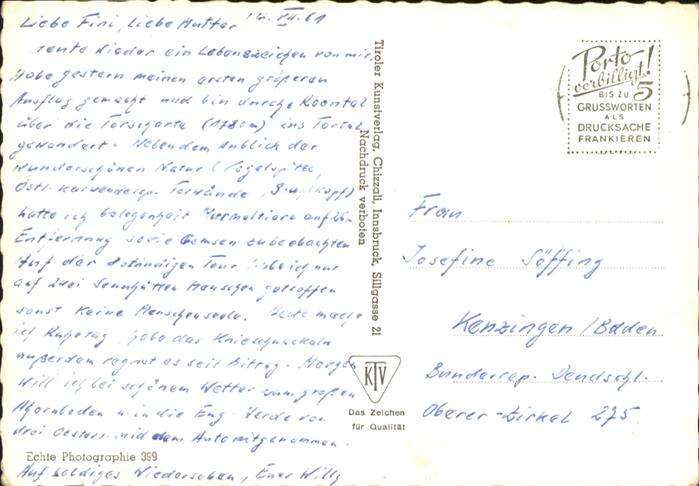 Liebe Fini, Liebe Mutter 14. VII. 61
heute wieder ein Lebenszeichen von mir
Habe gestern meinen ersten größeren
Ausflug gemacht und bin durchs
über die Torscharte (1780m) ins Tortal
gewandert. Neben dem Anblick der
wunderschönen Natur (
Östl. Karwendelsp. Torwände,
hatte ich Gelegenheit Murmeltiere auf
Entfernung sowie Gemsen zu beobachten
Auf der stündigen Tour habe ich nur
auf zwei Sennhütten Menschen getroffen
sonst keine Menschenseele. Heute mache
ich Ruhetag, habe das Knieschnackeln
außerdem regnet es seit Mittag. Morgen
will ich bei schönem Wetter zum großen
Ahornboden u. in die Eng. Werde von
drei mit dem Auto mitgenommen.
Auf baldiges Wiedersehen, Euer Willy
Echte Photographie 399
Tiroler Kunstverlag, Chizzali, Innsbruck, Sillgasse 21
Nachdruck verboten
KTV
Das Zeichen
für Qualität
Porto
verbilligt!
BIS ZU 5
GRUSSWORTEN
ALS
DRUCKSACHE
FRANKIEREN
Frau
Josefine Söffing
Kenzingen/Baden
Bundesrep. Deutschl.
Oberer-Zirkel 275